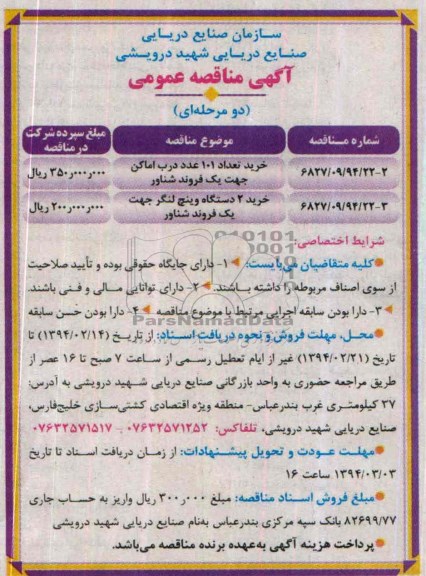 سازمان صنایع دریایی
صنایع دریایی شهید درویشی
آگهی مناقصه عمومی
(دو مرحله‌ای)
شماره مناقصه موضوع مناقصه مبلغ سپرده شرکت در مناقصه
۶۸۲۷/۰۹/۹۴/۲۲-۲ خرید تعداد ۱۰۱ عدد درب اماکن جهت یک فروند شناور ۳۵۰٫۰۰۰٫۰۰۰ ریال
۶۸۲۷/۰۹/۹۴/۲۲-۳ خرید ۲ دستگاه وینچ لنگر جهت یک فروند شناور ۲۰۰٫۰۰۰٫۰۰۰ ریال
شرایط اختصاصی:
کلیه متقاضیان می‌بایست: ۱- دارای جایگاه حقوقی بوده و تأیید صلاحیت
از سوی اصناف مربوطه را داشته باشند. ۲- دارای توانایی مالی و فنی باشند.
۳- دارا بودن سابقه اجرایی مرتبط با موضوع مناقصه ۴- دارا بودن حسن سابقه
محل، مهلت فروش و نحوه دریافت اسناد: از تاریخ (۱۳۹۴/۰۲/۱۴) تا
تاریخ (۱۳۹۴/۰۲/۲۱) غیر از ایام تعطیل رسمی از ساعت ۷ صبح تا ۱۶ عصر از
طریق مراجعه حضوری به واحد بازرگانی صنایع دریایی شهید درویشی به آدرس:
۳۷ کیلومتری غرب بندرعباس- منطقه ویژه اقتصادی کشتی‌سازی خلیج‌فارس،
صنایع دریایی شهید درویشی، تلفاکس: ۰۷۶۳۲۵۷۱۲۵۲ - ۰۷۶۳۲۵۷۱۵۱۷
مهلت عودت و تحویل پیشنهادات: از زمان دریافت اسناد تا تاریخ
۱۳۹۴/۰۳/۰۳ ساعت ۱۶
مبلغ فروش اسناد مناقصه: مبلغ ۳۰۰٫۰۰۰ ریال واریز به حساب جاری
۸۲۶۹۹/۷۷ بانک سپه مرکزی بندرعباس به‌نام صنایع دریایی شهید درویشی
پرداخت هزینه آگهی به‌عهده برنده مناقصه می‌باشد.
ParsNamadData